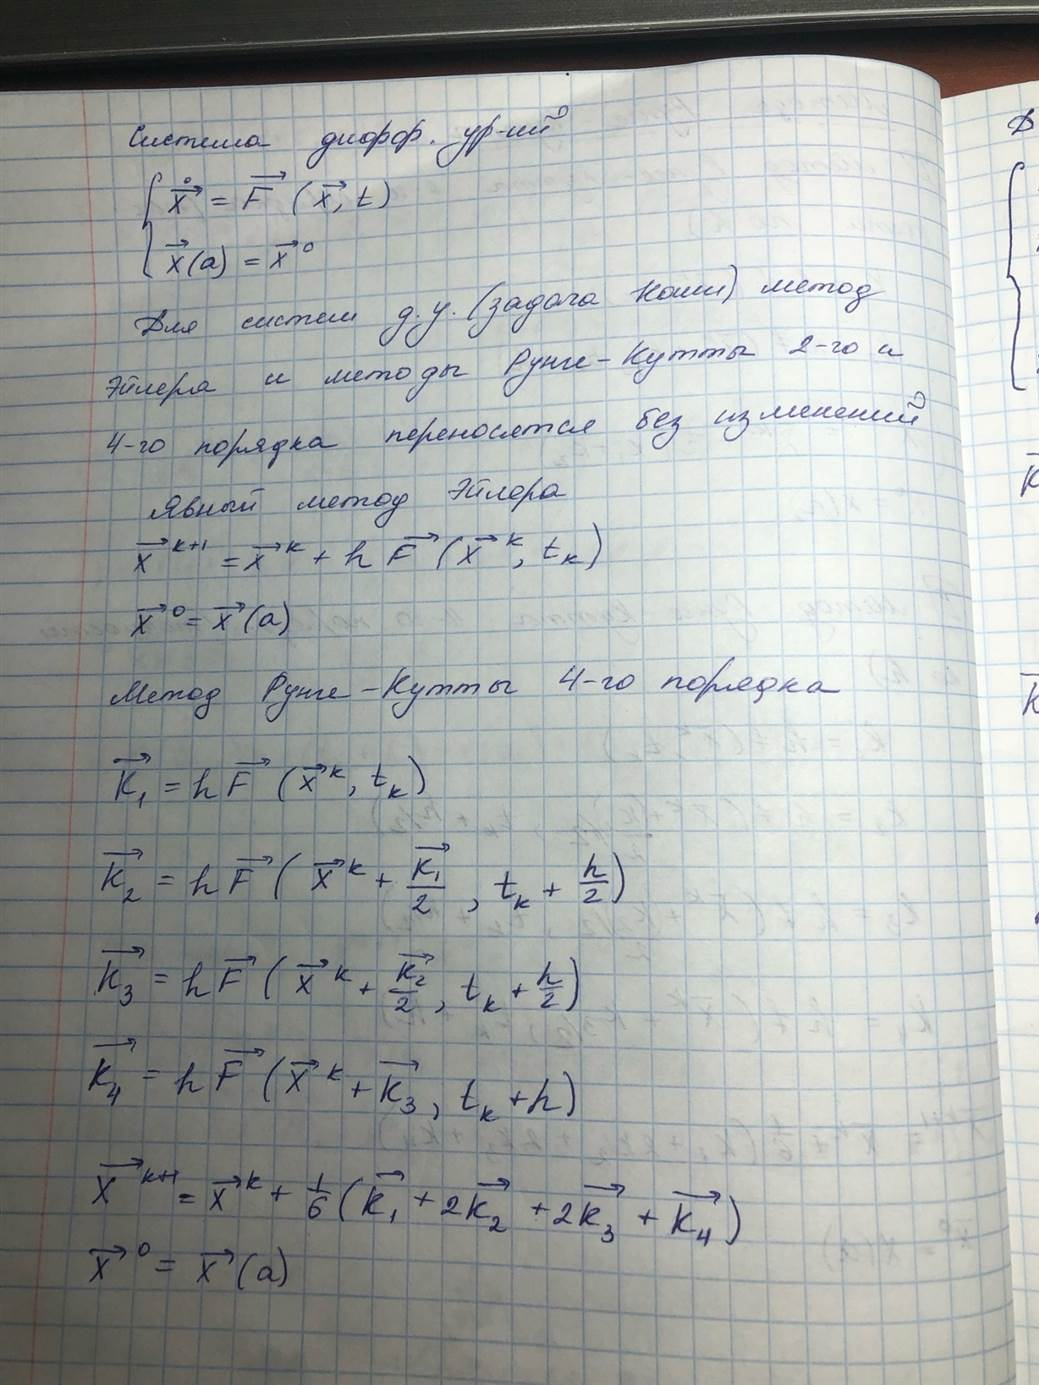 Система дифф. ур-ий
{ ẋ⃗ = F⃗ (x⃗, t)
x⃗(a) = x⃗⁰
Для систем д.у. (задача Коши) метод
Эйлера и методы Рунге-Кутты 2-го и
4-го порядка переносятся без изменений
Явный метод Эйлера
x⃗ᵏ⁺¹ = x⃗ᵏ + h F⃗ (x⃗ᵏ, tₖ)
x⃗⁰ = x⃗(a)
Метод Рунге-Кутты 4-го порядка
K⃗₁ = h F⃗ (x⃗ᵏ, tₖ)
K⃗₂ = h F⃗ (x⃗ᵏ + K⃗₁/2, tₖ + h/2)
K⃗₃ = h F⃗ (x⃗ᵏ + K⃗₂/2, tₖ + h/2)
K⃗₄ = h F⃗ (x⃗ᵏ + K⃗₃, tₖ + h)
x⃗ᵏ⁺¹ = x⃗ᵏ + 1/6 (K⃗₁ + 2K⃗₂ + 2K⃗₃ + K⃗₄)
x⃗⁰ = x⃗(a)